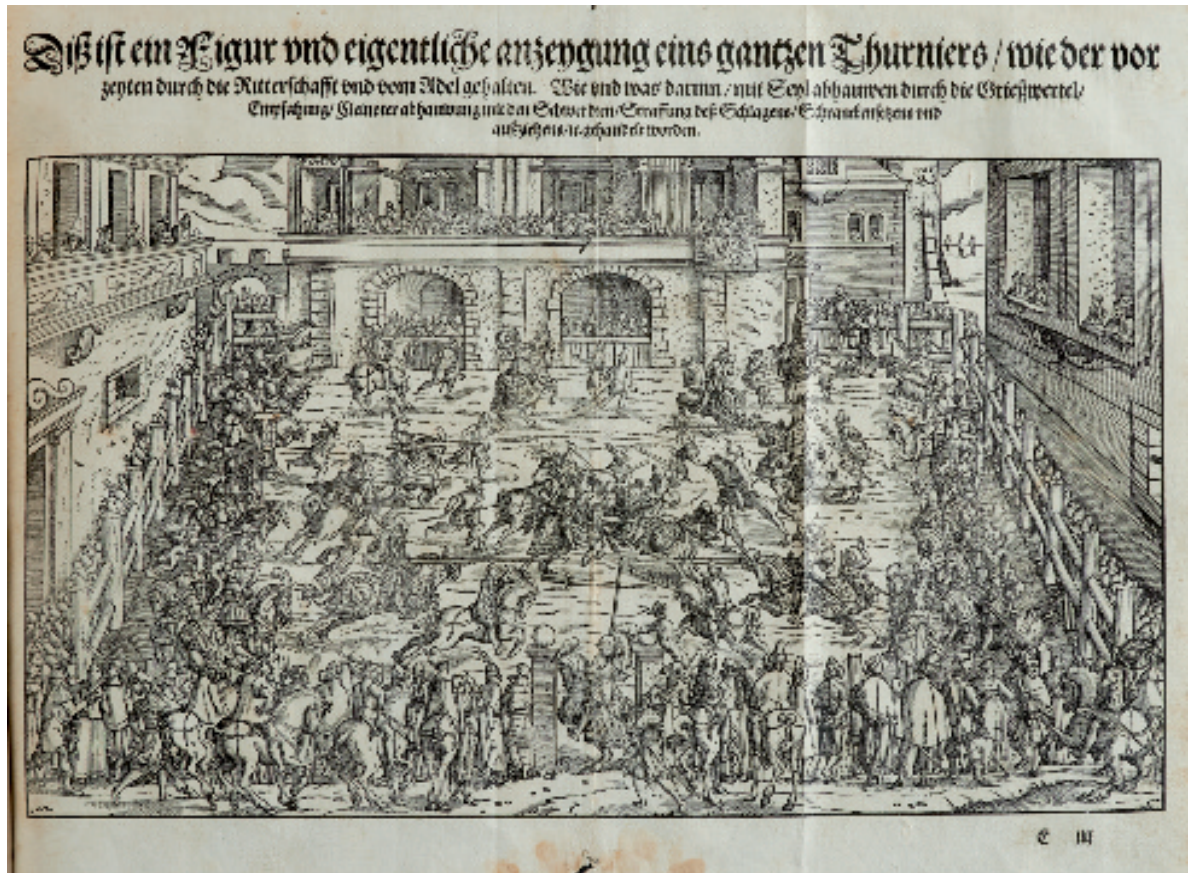 Diß ist ein Figur vnd eigentliche anzeygung eins gantzen Thurniers / wie der vor
zeyten durch die Ritterschafft vnd vom Adel gehalten. Wie vnd was darinn / mit Seyl abhauwen durch die Grießwertel /
Empfahung / Cleineter abhauwung mit den Schwerdten / Straffung deß Schlagens / Schranckensetzens vnd
außziehens / ꝛc. gehandelt worden.
C iiij